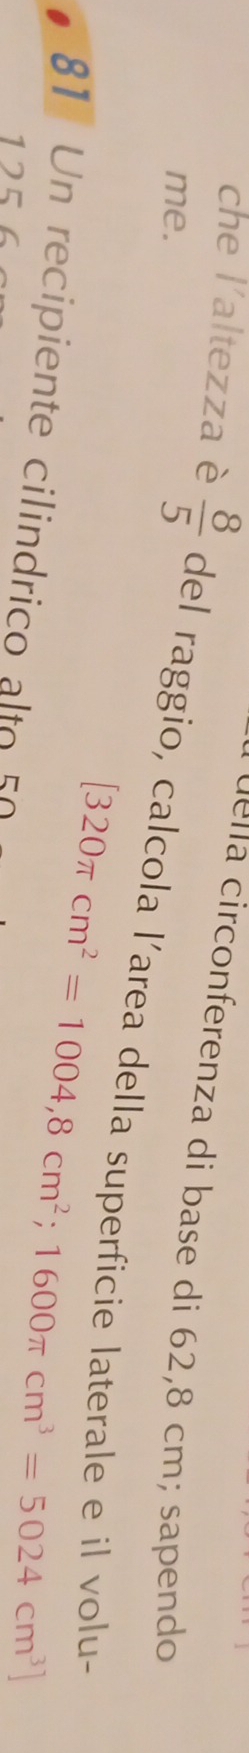 della circonferenza di base di 62,8 cm; sapendo
che l'altezza è 8/5 del raggio, calcola l'area della superficie laterale e il volu-
me.
[320π cm² = 1004,8 cm²; 1600π cm³ = 5024 cm³]
81 Un recipiente cilindrico alto 50
125,6